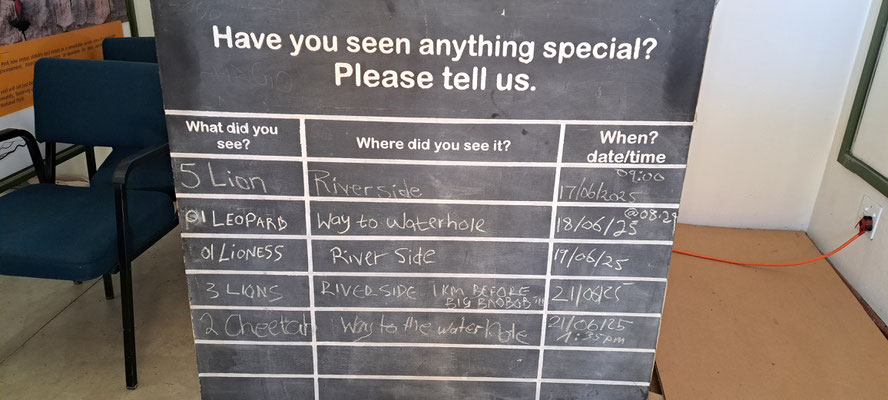 Have you seen anything special?
Please tell us.
What did you see?
Where did you see it?
When? date/time
5 Lion Riverside 09:00 17/06/2025
01 LEOPARD Way to waterhole @08:29 18/06/25
01 LIONESS River Side 19/06/25
3 LIONS RIVERSIDE 1KM BEFORE BIG BAOBOB 21/06/25
2 Cheetah Way to the waterhole 21/06/25 1:35pm